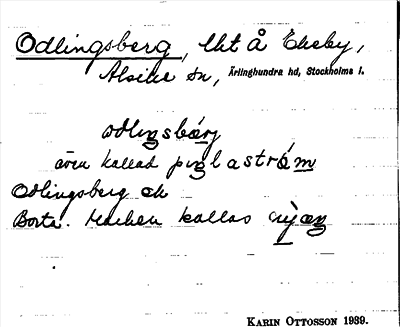 Odlingsberg, lht å Ekeby,
Alsike sn, Ärlinghundra hd, Stockholms l.
odliŋsbærj
även kallad piŋlaström
Odlingsberg och
Borta. Marken kallas nyæŋ
KARIN OTTOSSON 1939.